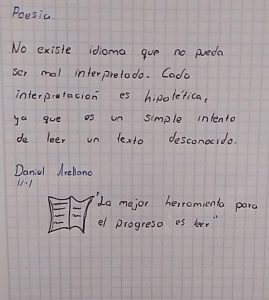 Poesía
No existe idioma que no pueda
ser mal interpretado. Cada
interpretación es hipotética,
ya que es un simple intento
de leer un texto desconocido.
Daniel Arellano
11-1
"La mejor herramienta para
el progreso es leer"